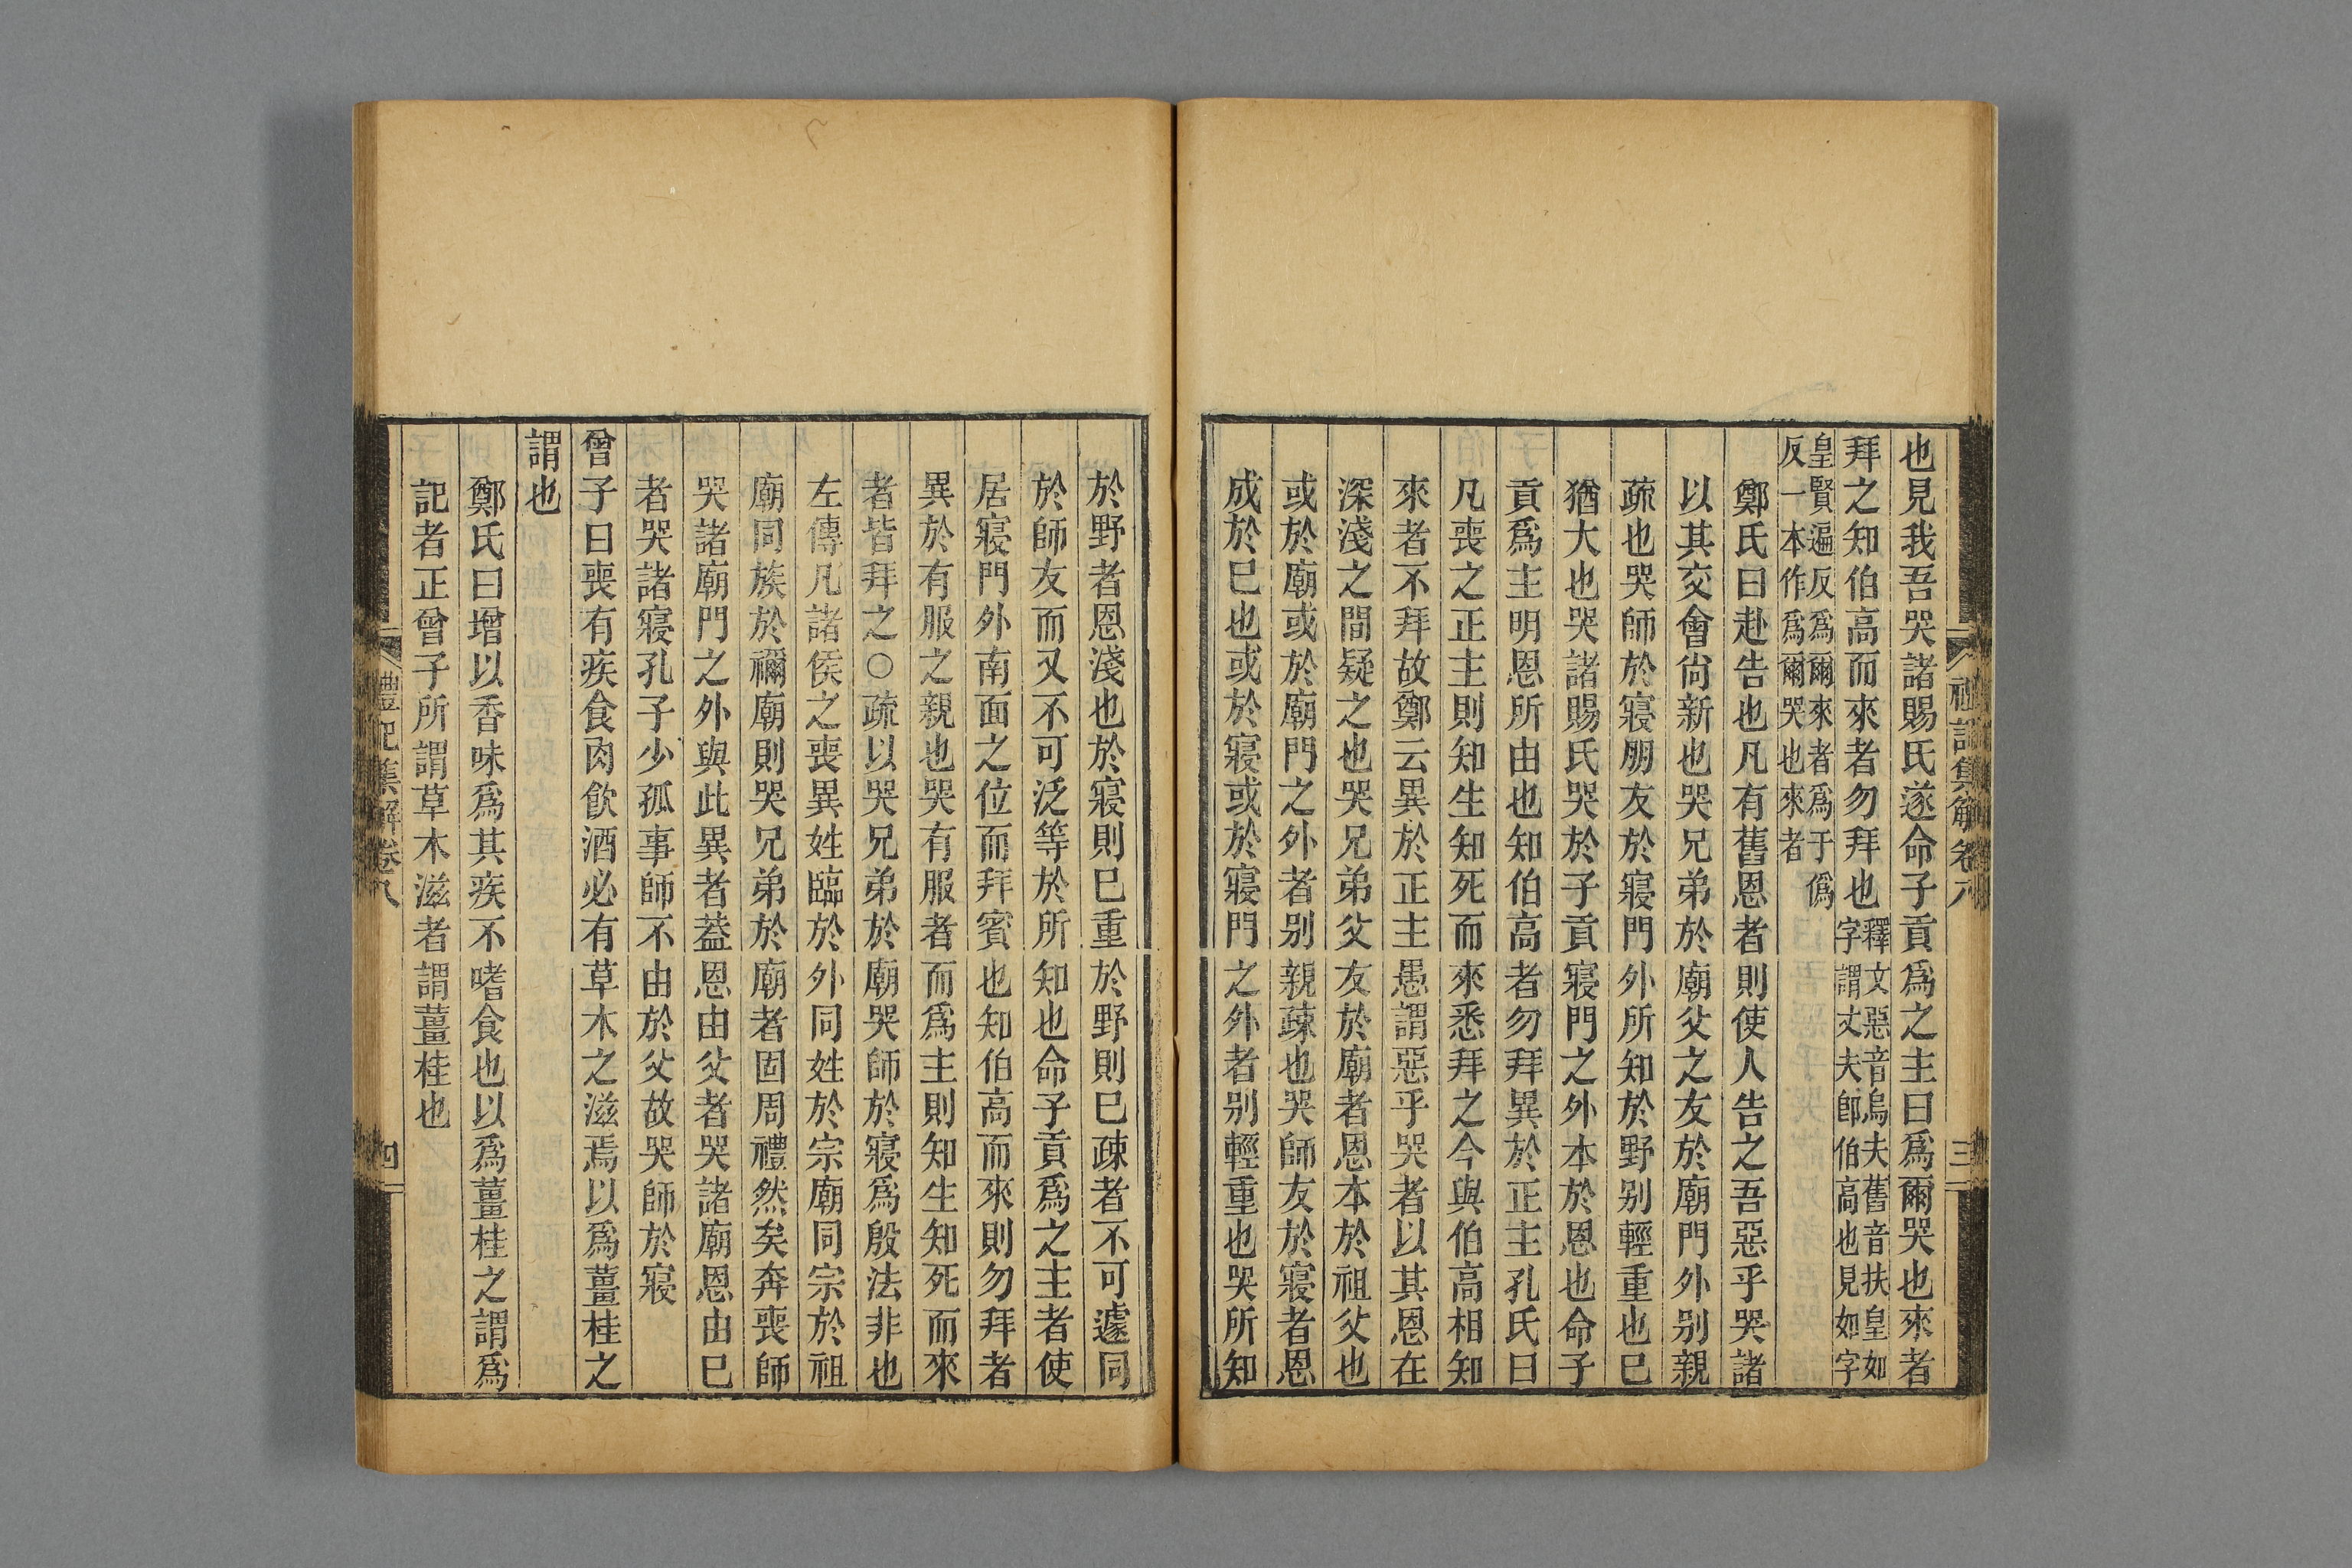 禮記集解卷八
三
也見我吾哭諸賜氏遂命子貢爲之主曰爲爾哭也來者
拜之知伯高而來者勿拜也
釋文惡音烏夫舊音扶皇如
字謂丈夫卽伯高也見如字
皇賢遍反爲爾來者爲于僞
反一本作爲爾哭也來者
鄭氏曰赴告也凡有舊恩者則使人告之吾惡乎哭諸
以其交會尙新也哭兄弟於廟父之友於廟門外别親
疏也哭師於寢朋友於寢門外所知於野别輕重也已
猶大也哭諸賜氏哭於子貢寢門之外本於恩也命子
貢爲主明恩所由也知伯高者勿拜異於正主孔氏曰
凡喪之正主則知生知死而來悉拜之今與伯高相知
來者不拜故鄭云異於正主愚謂惡乎哭者以其恩在
深淺之間疑之也哭兄弟父友於廟者恩本於祖父也
或於廟或於廟門之外者别親疎也哭師友於寢者恩
成於已也或於寢或於寢門之外者别輕重也哭所知
於野者恩淺也於寢則已重於野則已疎者不可遽同
於師友而又不可泛等於所知也命子貢爲之主者使
居寢門外南面之位而拜賓也知伯高而來則勿拜者
異於有服之親也哭有服者而爲主則知生知死而來
者皆拜之○疏以哭兄弟於廟哭師於寢爲殷法非也
左傳凡諸侯之喪異姓臨於外同姓於宗廟同宗於祖
廟同族於禰廟則哭兄弟於廟者固周禮然矣奔喪師
哭諸廟門之外與此異者葢恩由父者哭諸廟恩由已
者哭諸寢孔子少孤事師不由於父故哭師於寢
曾子曰喪有疾食肉飮酒必有草木之滋焉以爲薑桂之
謂也
鄭氏曰增以香味爲其疾不嗜食也以爲薑桂之謂爲
記者正曾子所謂草木滋者謂薑桂也
禮記集解卷八
四